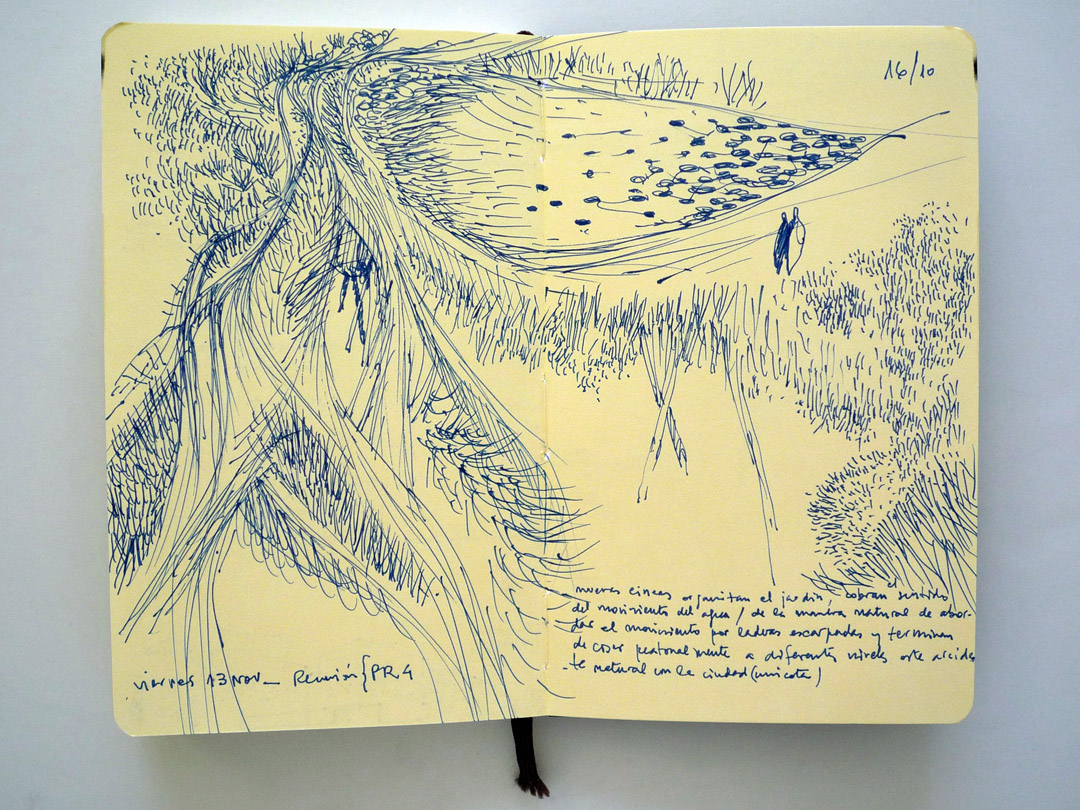 16/10
nuevas lineas organizan el jardin, cobran el sentido
del movimiento del agua / de la manera natural de abor-
dar el movimiento por laderas escarpadas y terminan
de coser peatonalmente a diferentes niveles este acciden
te natural con la ciudad (unicota)
viernes 13 nov_ Reunión {PR4